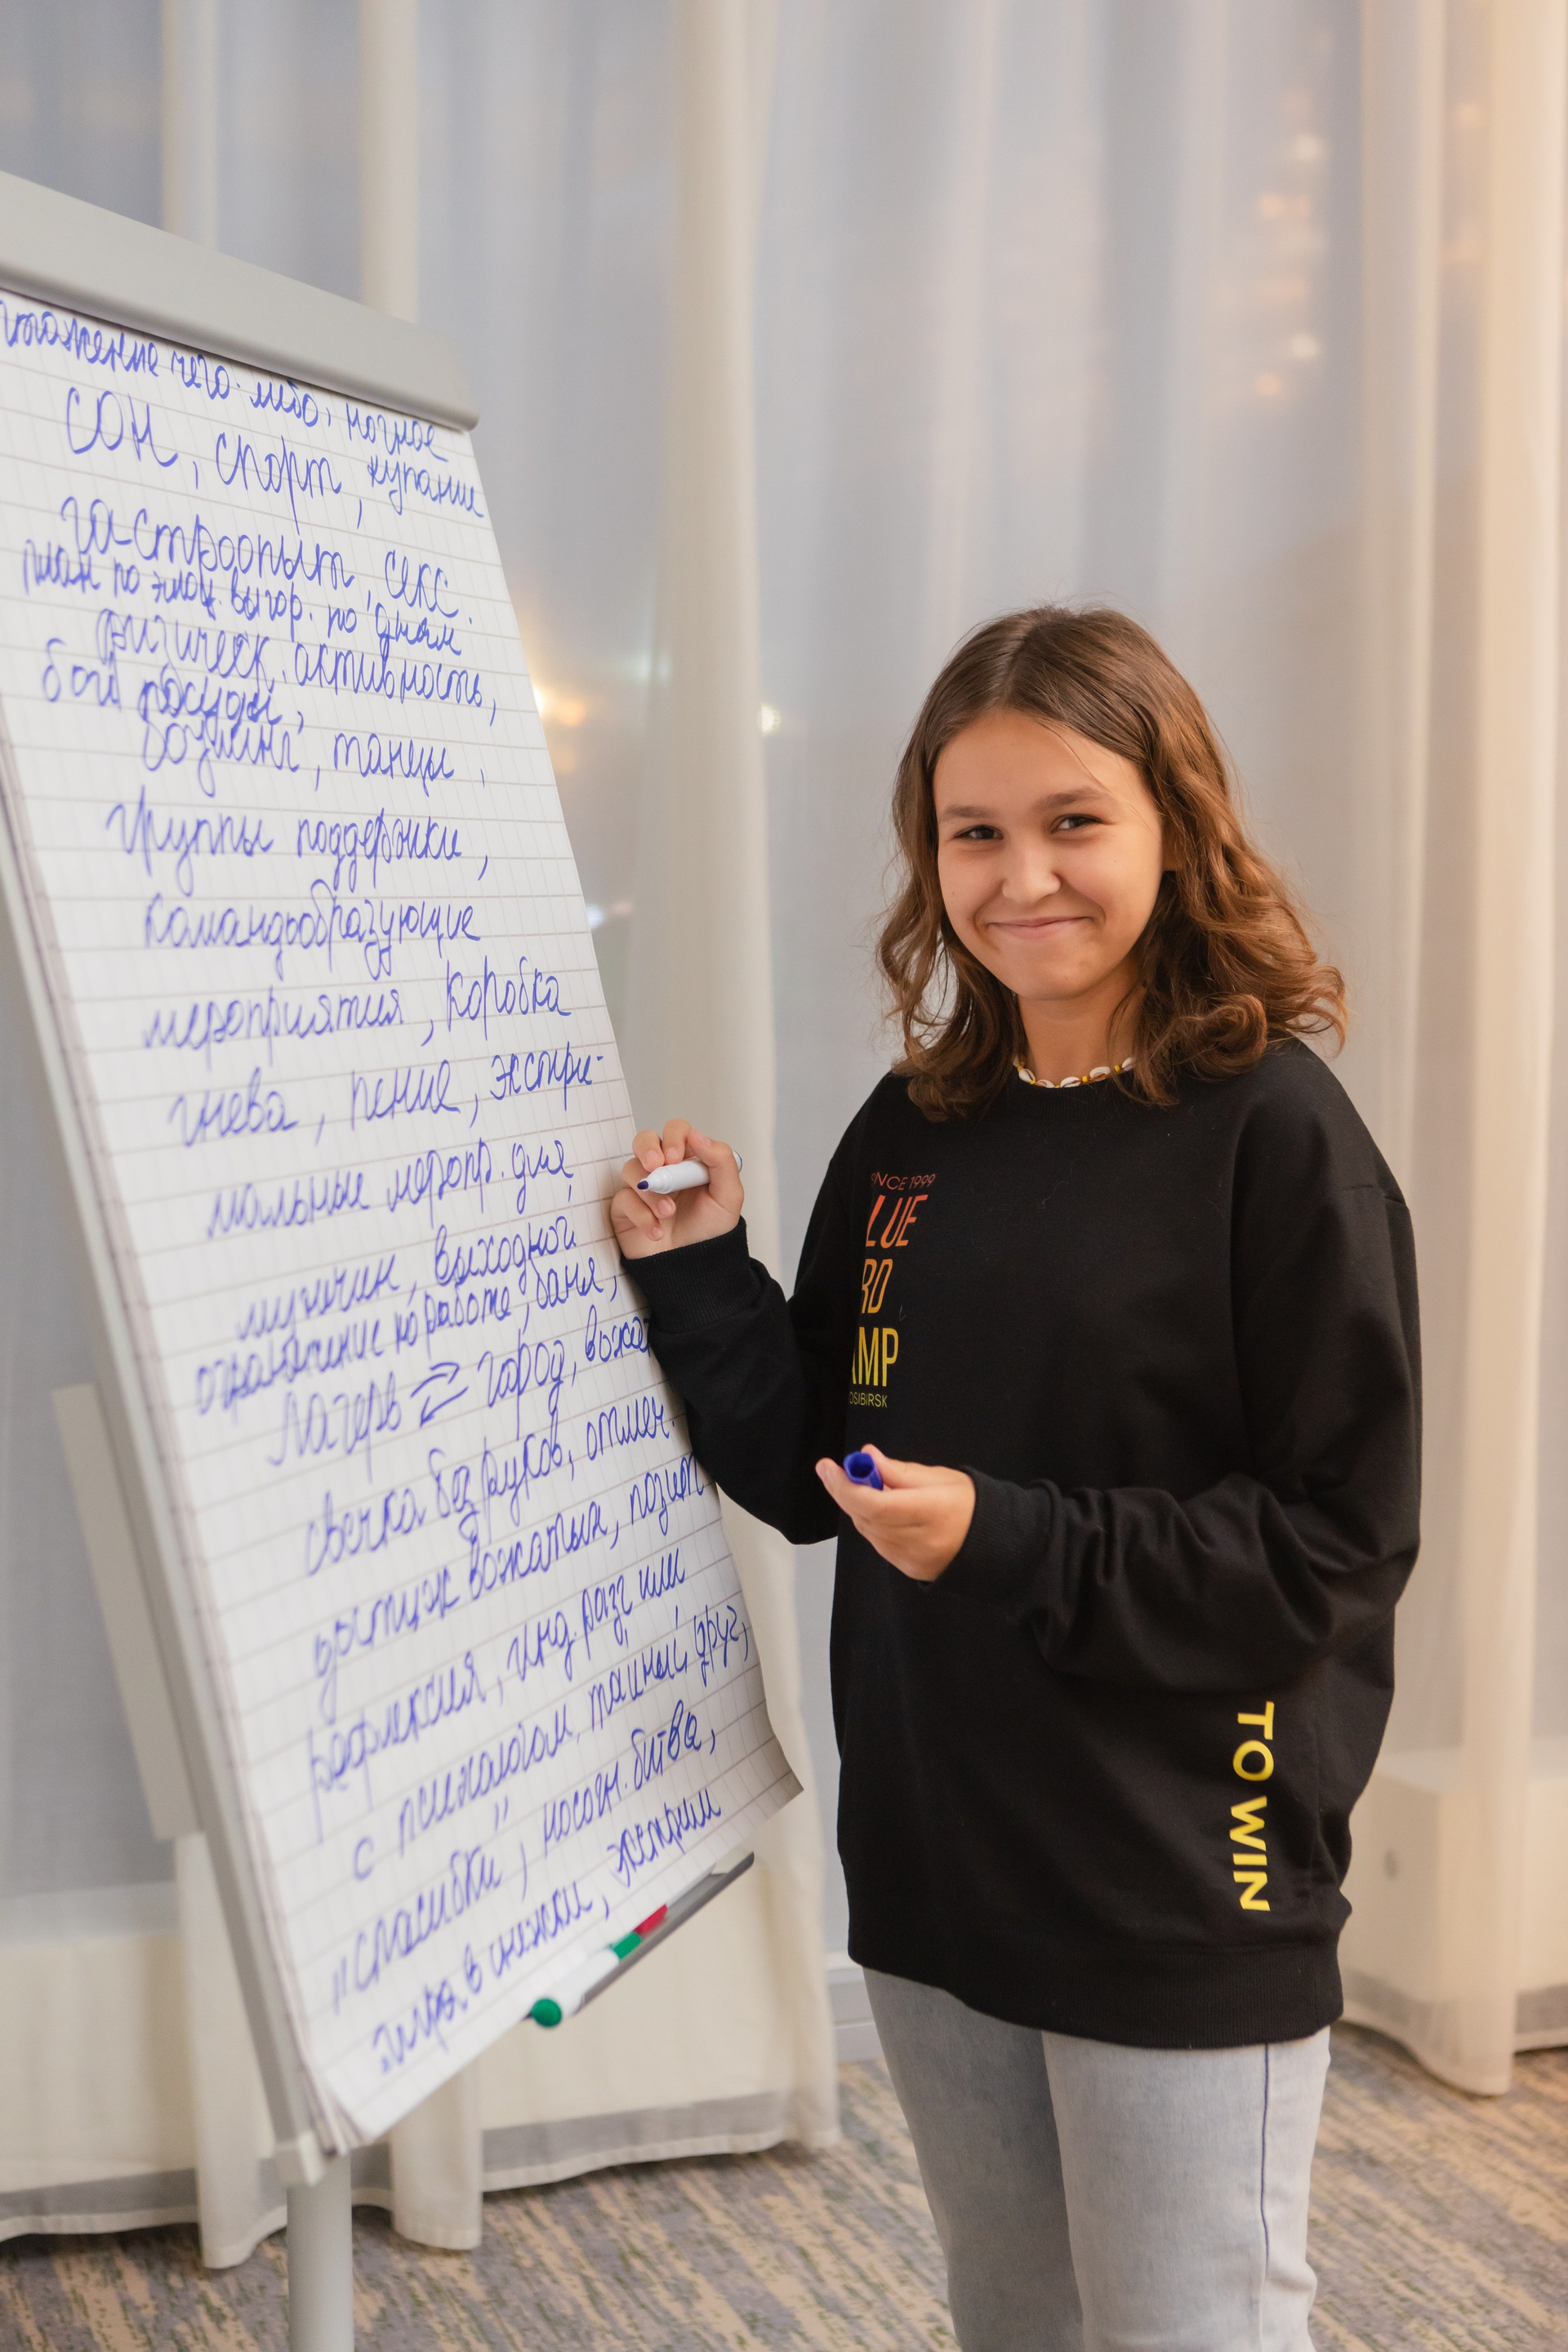 чего-либо, ночное
сон, спорт, купание
гастроопыт, секс.
план по эмоц. выгор. по дням
физическ. активность,
бой посуды,
боулинг, танцы,
группы поддержки,
командообразующие
мероприятия, коробка
гнева, пение, экстри-
мальные меропр. для
мужчин, выходной
ограничение по работе, баня,
Лагерь ⇄ город,
свечка без руков, отмен.
вожатых, позит
рефлексия, инд. разг или
с психологом, тайный друг,
"спасибки", носочн. битва,
игра в снежки, экстрим
SINCE 1999
LUE
RD
AMP
OSIBIRSK
TO WIN